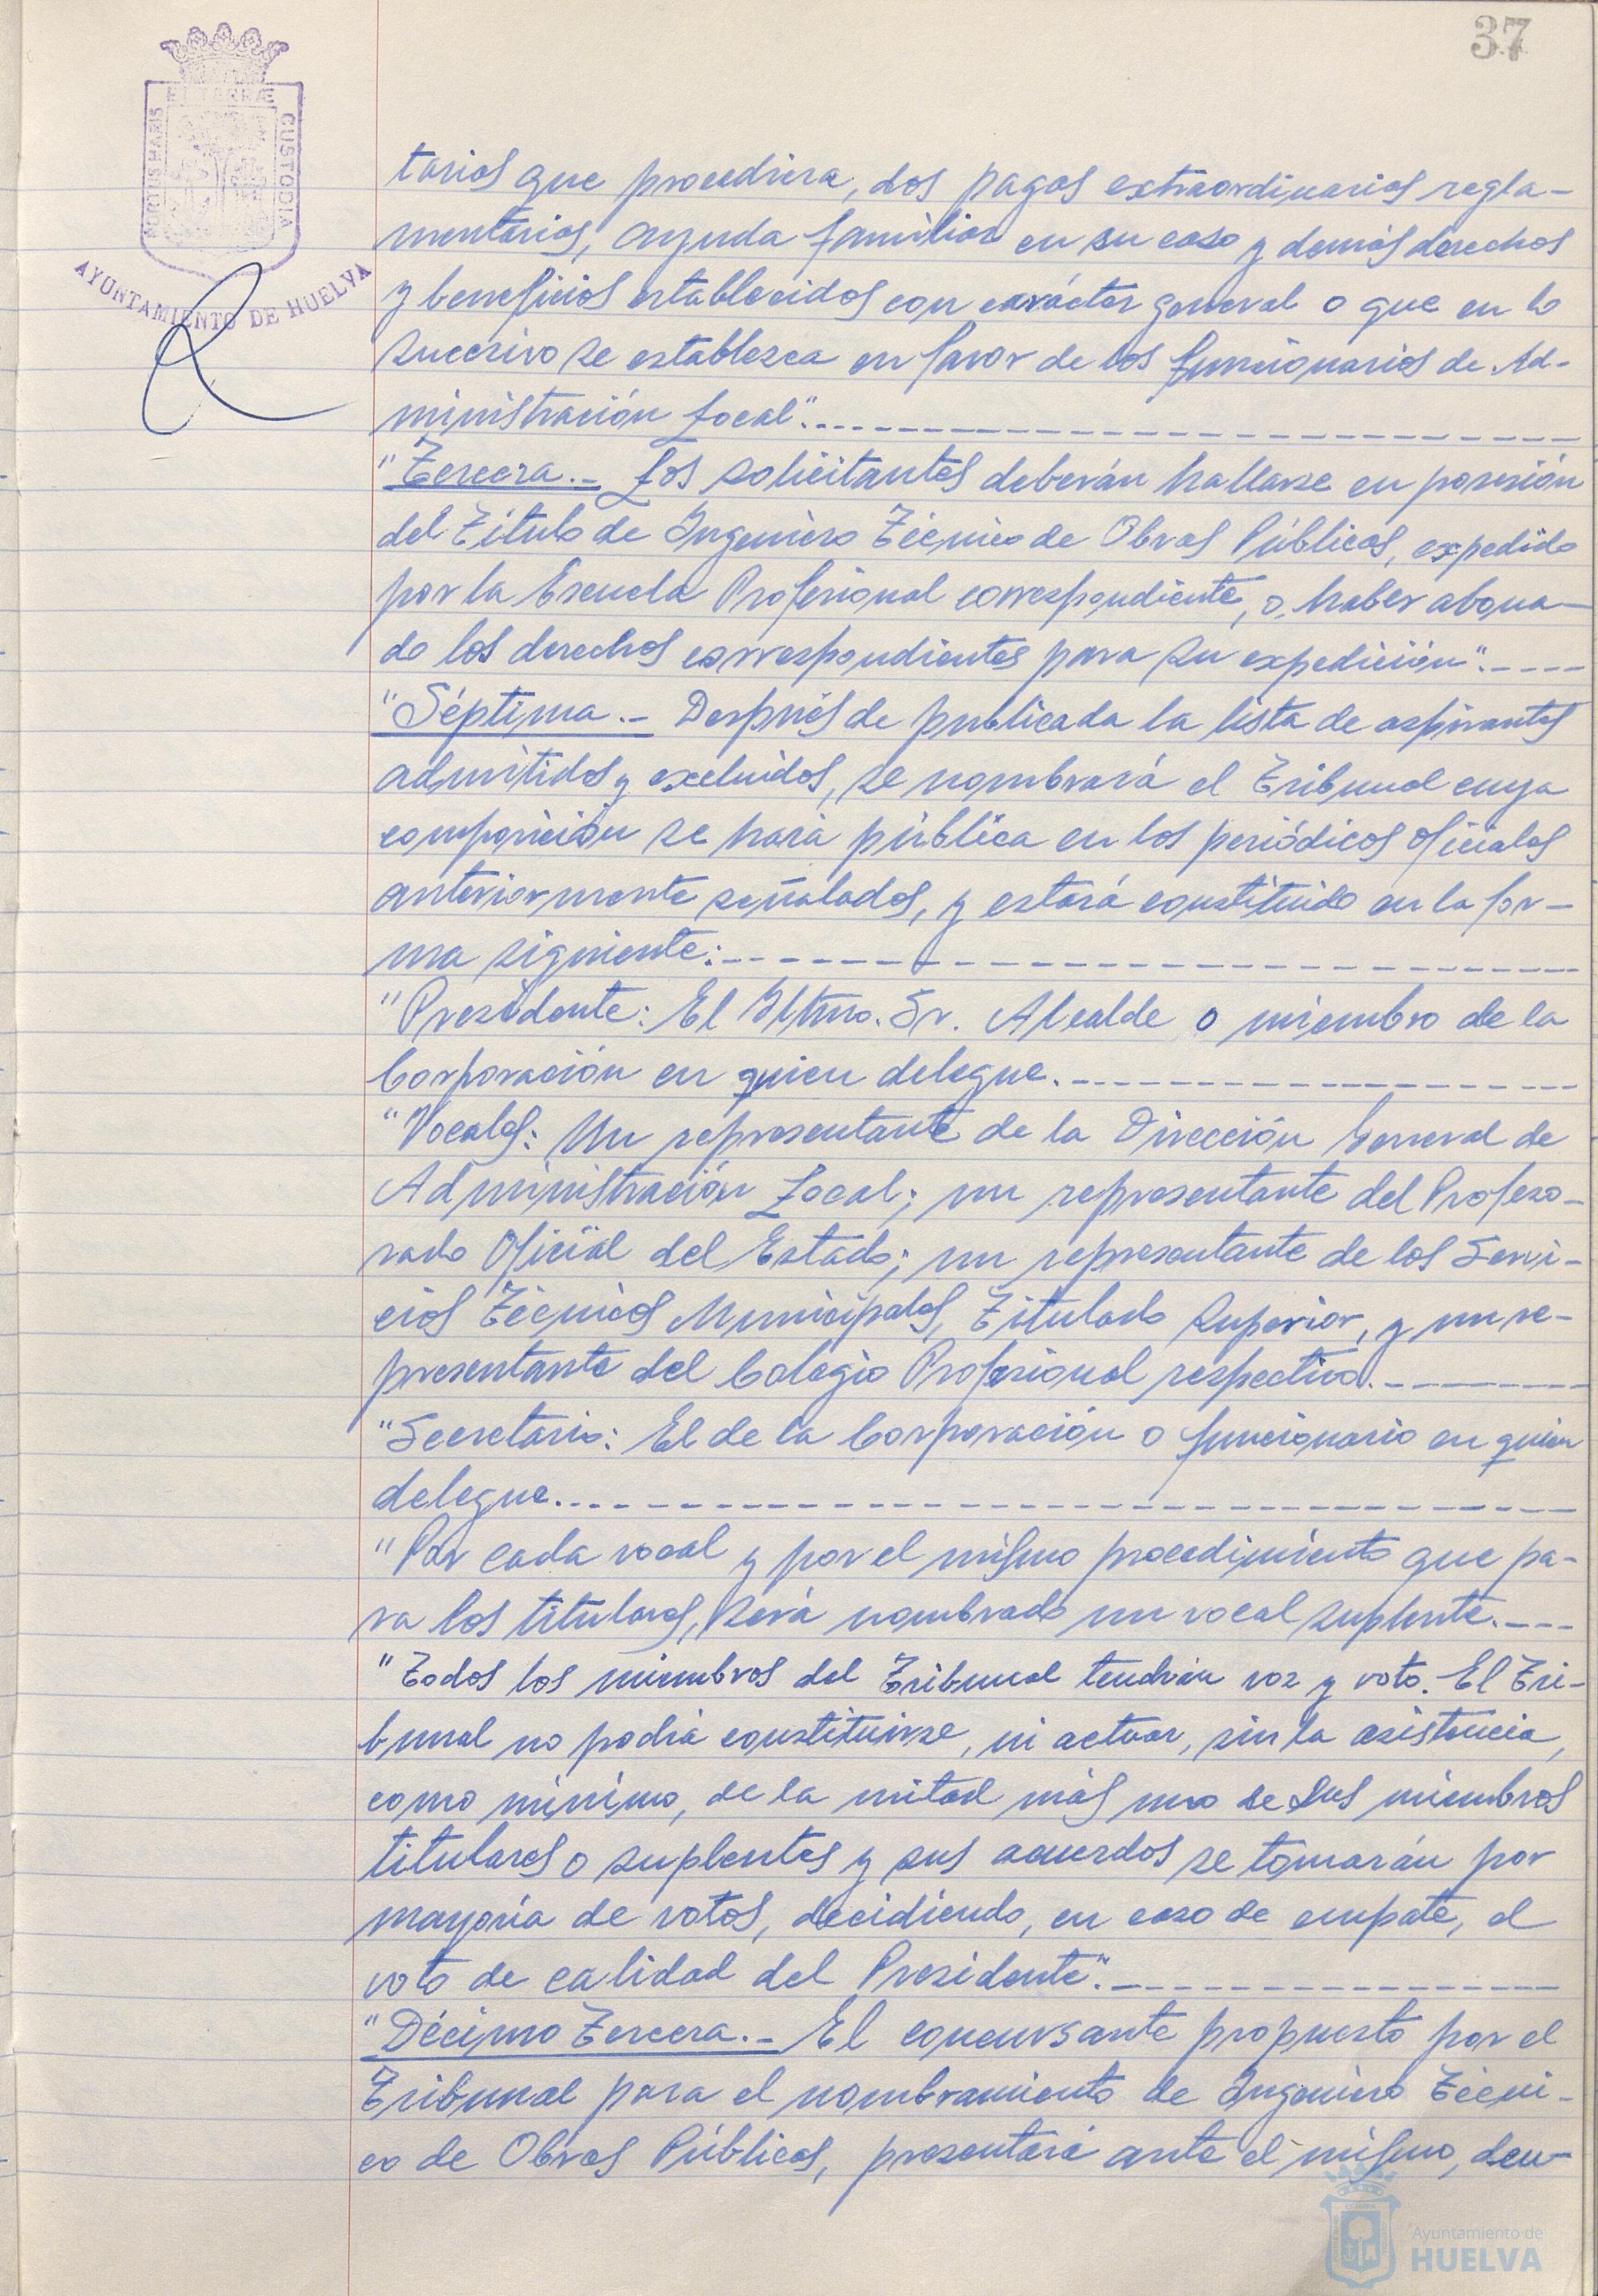 37
PORTUS MARIS
ET TERRÆ
CUSTODIA
AYUNTAMIENTO DE HUELVA
tarios que procediera, dos pagas extraordinarias regla-
mentarias, ayuda familiar en su caso y demás derechos
y beneficios establecidos con carácter general o que en lo
sucesivo se establezca en favor de los funcionarios de Ad-
ministración Local".
"Tercera.- Los solicitantes deberán hallarse en posesión
del Título de Ingeniero Técnico de Obras Públicas, expedido
por la Escuela Profesional correspondiente, o haber abona-
do los derechos correspondientes para su expedición".
"Séptima.- Después de publicada la lista de aspirantes
admitidos y excluidos, se nombrará el Tribunal cuya
composición se hará pública en los periódicos oficiales
anteriormente señalados, y estará constituido en la for-
ma siguiente:
"Presidente: El Iltmo. Sr. Alcalde o miembro de la
Corporación en quien delegue.
"Vocales: Un representante de la Dirección General de
Administración Local; un representante del Profeso-
rado Oficial del Estado; un representante de los Servi-
cios Técnicos Municipales, Titulado Superior, y un re-
presentante del Colegio Profesional respectivo.
"Secretario: El de la Corporación o funcionario en quien
delegue.
"Por cada vocal y por el mismo procedimiento que pa-
ra los titulares, será nombrado un vocal suplente.
"Todos los miembros del Tribunal tendrán voz y voto. El Tri-
bunal no podrá constituirse, ni actuar, sin la asistencia,
como mínimo, de la mitad más uno de sus miembros
titulares o suplentes y sus acuerdos se tomarán por
mayoría de votos, decidiendo, en caso de empate, el
voto de calidad del Presidente".
"Décimo Tercera.- El concursante propuesto por el
Tribunal para el nombramiento de Ingeniero Técni-
co de Obras Públicas, presentará ante el mismo, den-
Ayuntamiento de
HUELVA